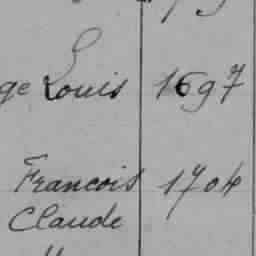 ge Louis 1697
Francois 1704
Claude